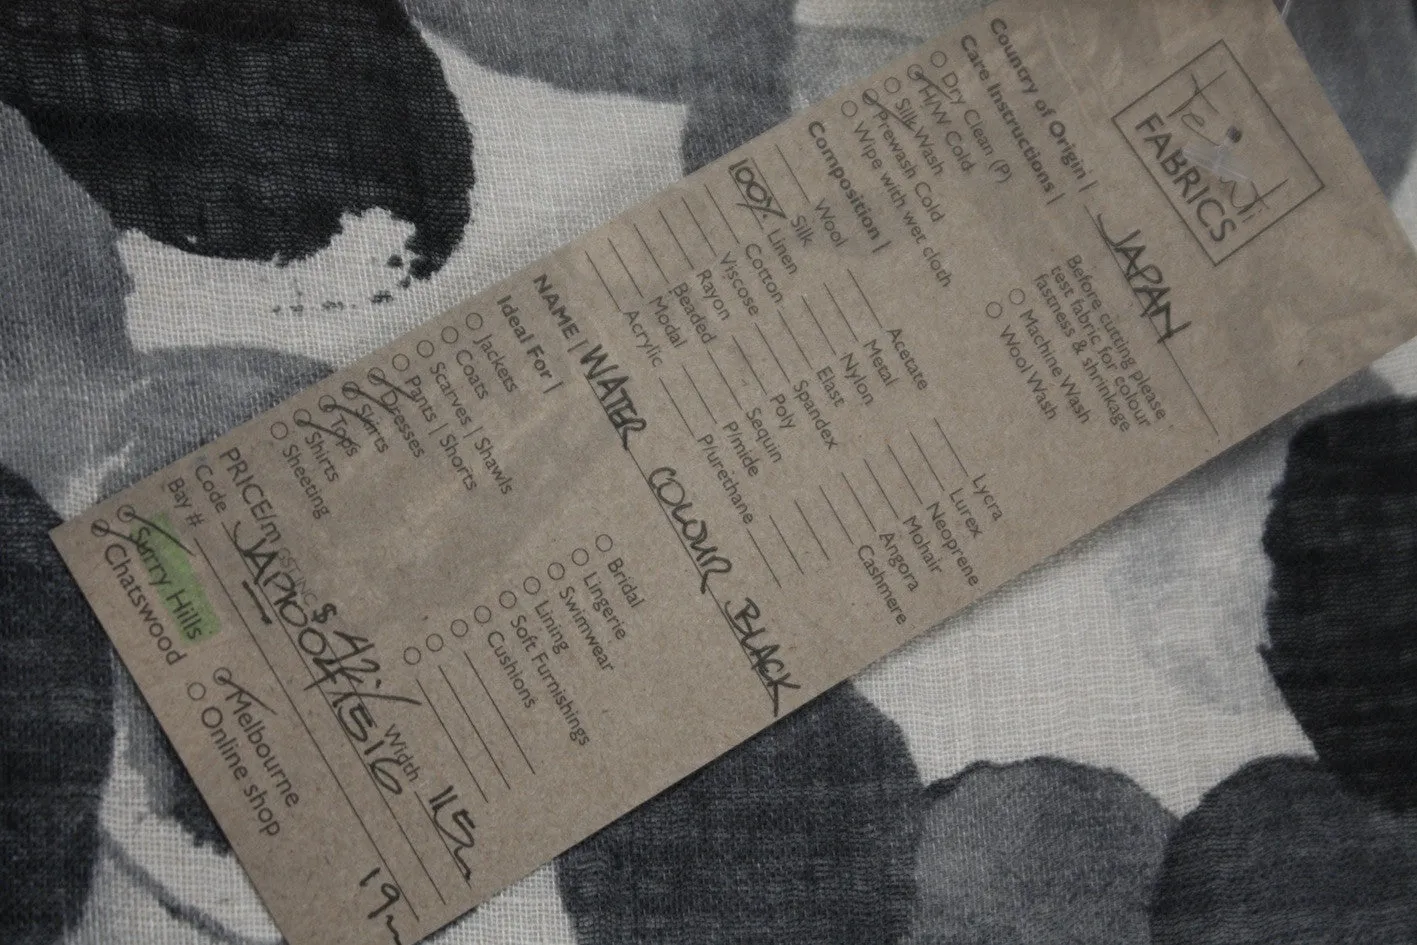 Tessuti
FABRICS
Country of Origin | JAPAN
Care Instructions |
Dry Clean (P)
H/W Cold
Silk Wash
Prewash Cold
Wipe with wet cloth
Before cutting please
test fabric for colour
fastness & shrinkage
Machine Wash
Wool Wash
Composition |
Wool
Silk
100% Linen
Cotton
Viscose
Rayon
Beaded
Modal
Acrylic
Acetate
Metal
Nylon
Elast
Spandex
Poly
Sequin
P/mide
P/urethane
Lycra
Lurex
Neoprene
Mohair
Angora
Cashmere
NAME | WATER COLOUR BLACK
Ideal For |
Jackets
Coats
Scarves | Shawls
Pants | Shorts
Dresses
Skirts
Tops
Shirts
Sheeting
Bridal
Lingerie
Swimwear
Lining
Soft Furnishings
Cushions
PRICE/m GST INC $ 42.- Width 115
Code JAP10047516
Bay # 19
Surry Hills
Chatswood
Melbourne
Online shop